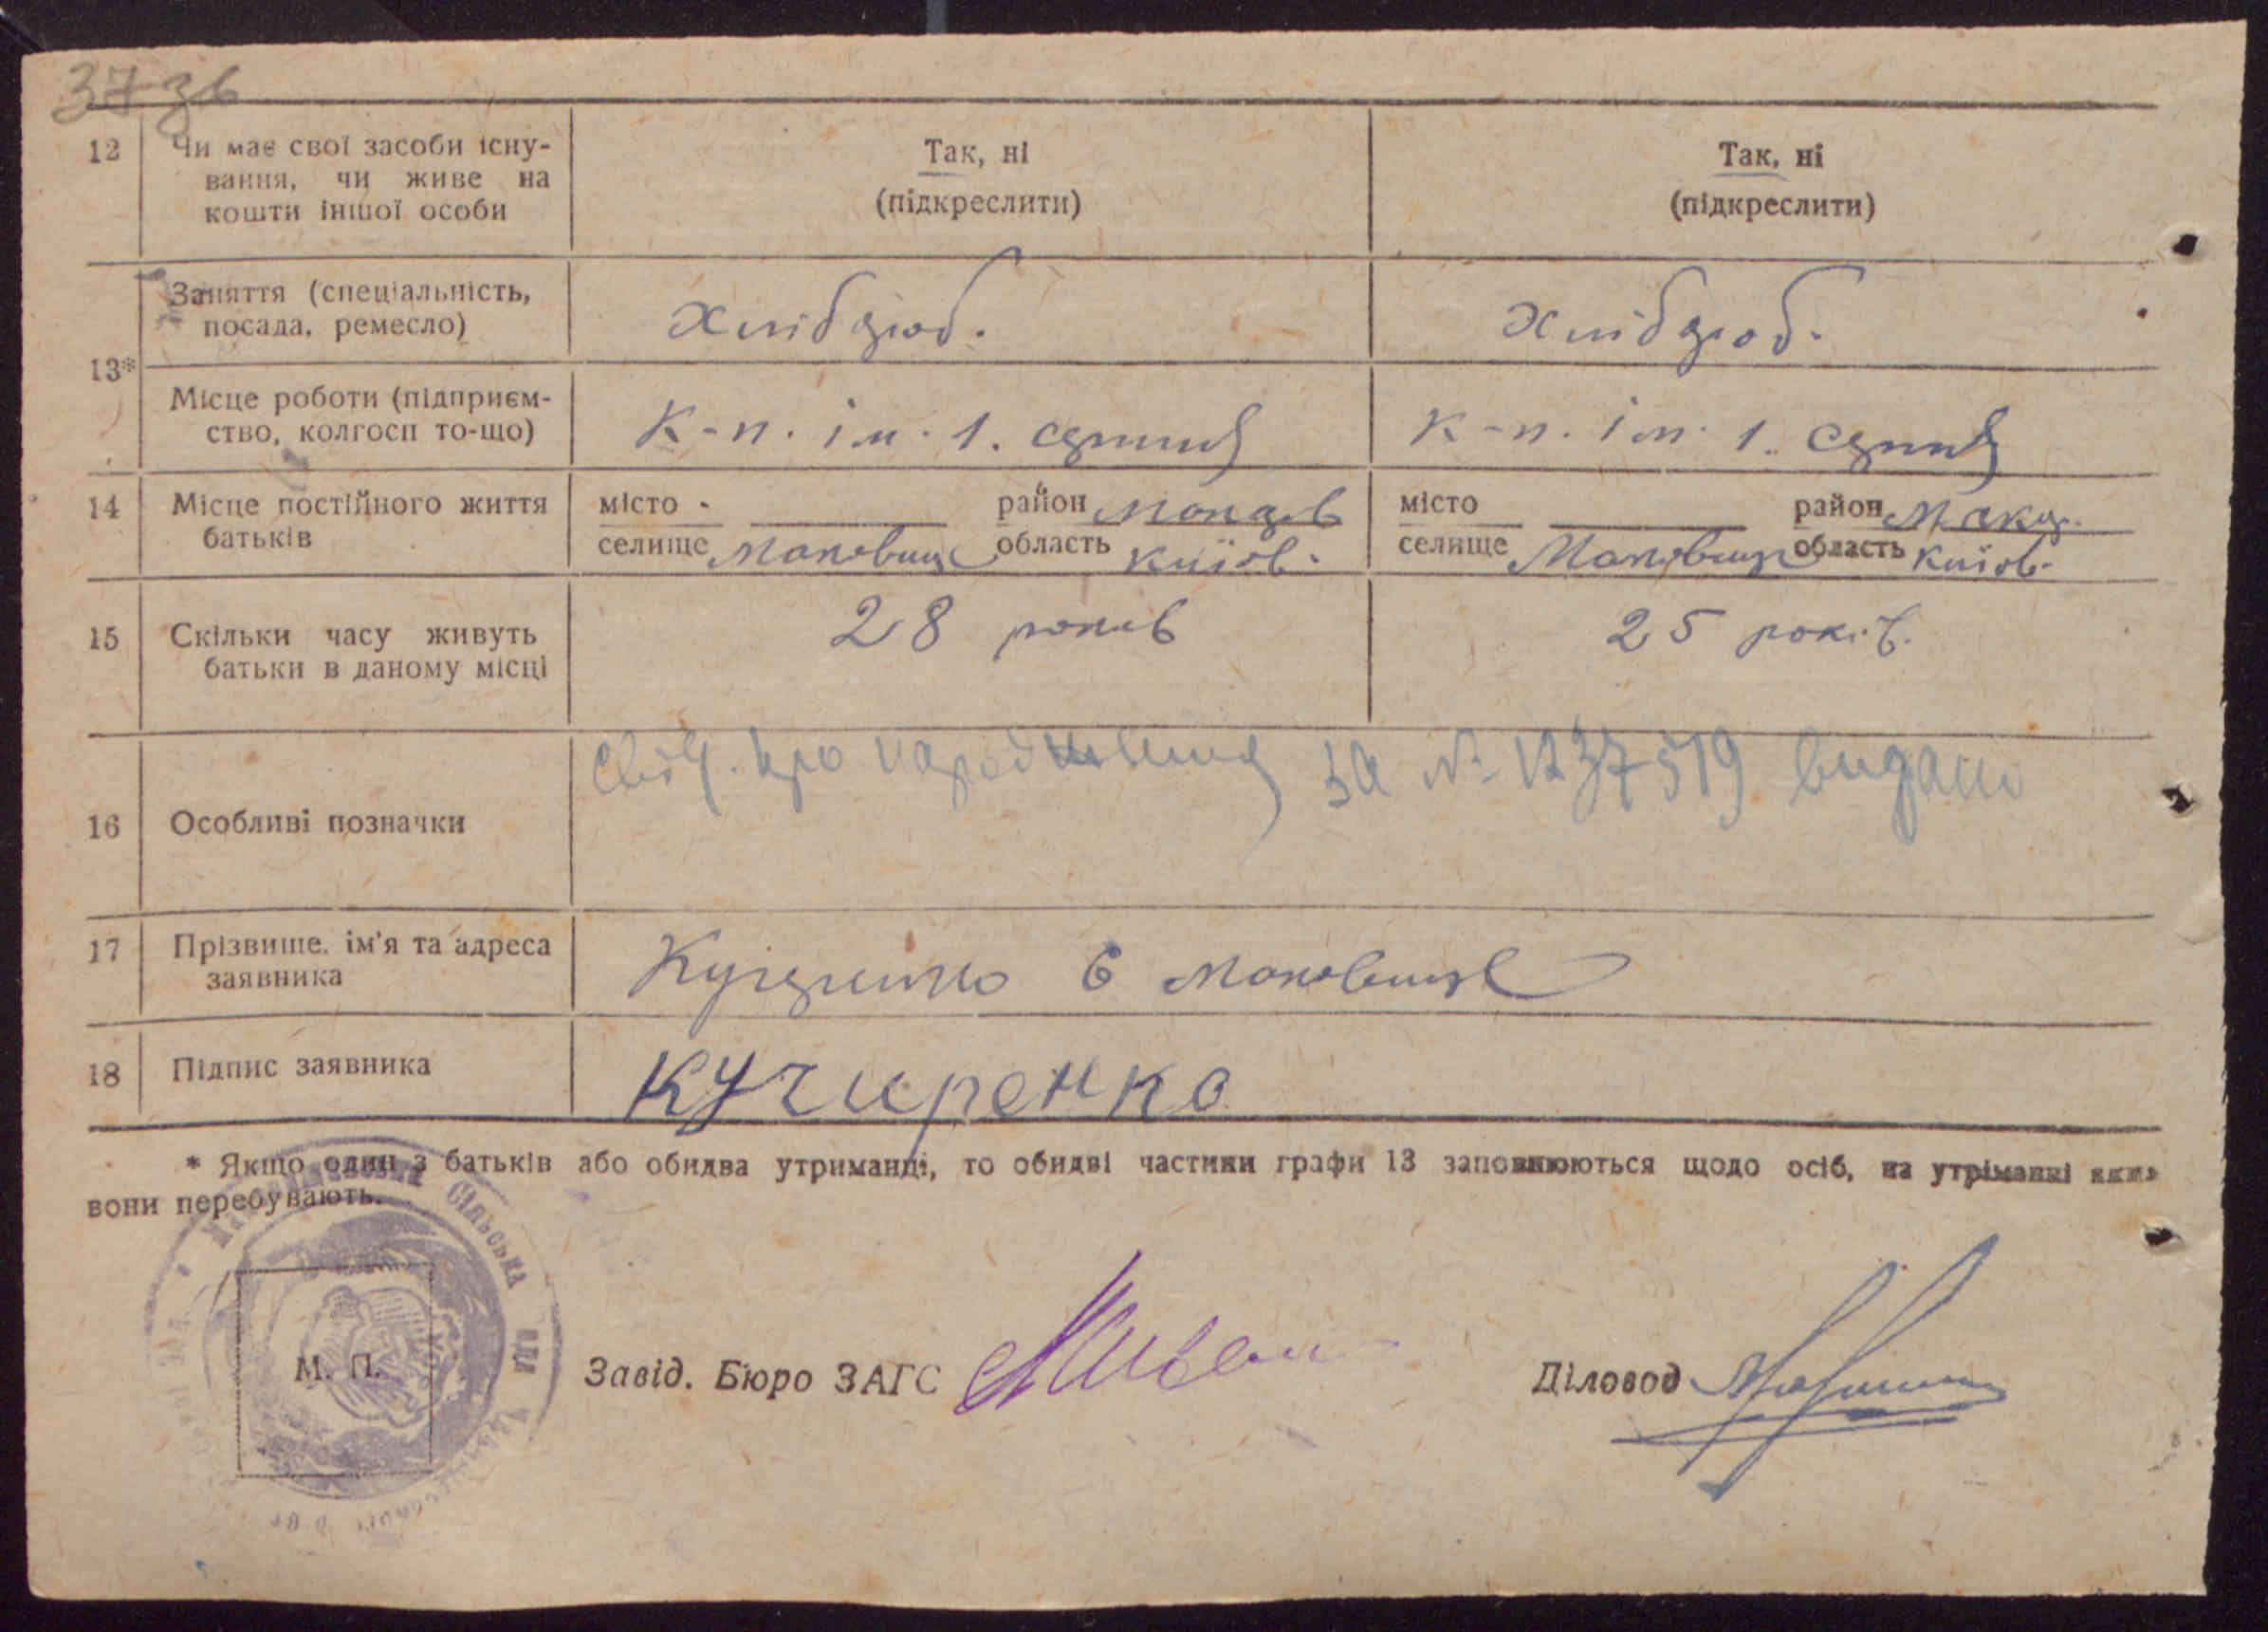 37 зв
12 Чи має свої засоби існу-
вання, чи живе на
кошти іншої особи
Так, ні
(підкреслити)
Так, ні
(підкреслити)
13*
Заняття (спеціальність,
посада, ремесло)
Хлібороб.
Хлібороб.
Місце роботи (підприєм-
ство, колгосп то-що)
К-п. ім. 1. серпня
К-п. ім. 1. серпня
14 Місце постійного життя
батьків
місто район Макар
селище Маковище область Київ.
місто район Макар.
селище Маковище область Київ.
15 Скільки часу живуть
батьки в даному місці
28 років
25 років.
16 Особливі позначки
Свід. про народження за № 1237519 видано
17 Прізвище. ім'я та адреса
заявника
Кучеренко с Маковище
18 Підпис заявника
Кучиренко
* Якщо один з батьків або обидва утриманці, то обидві частини графи 13 заповнюються щодо осіб, на утріманні яких
вони перебувають.
Сільська
М. П.
Завід. Бюро ЗАГС
Діловод